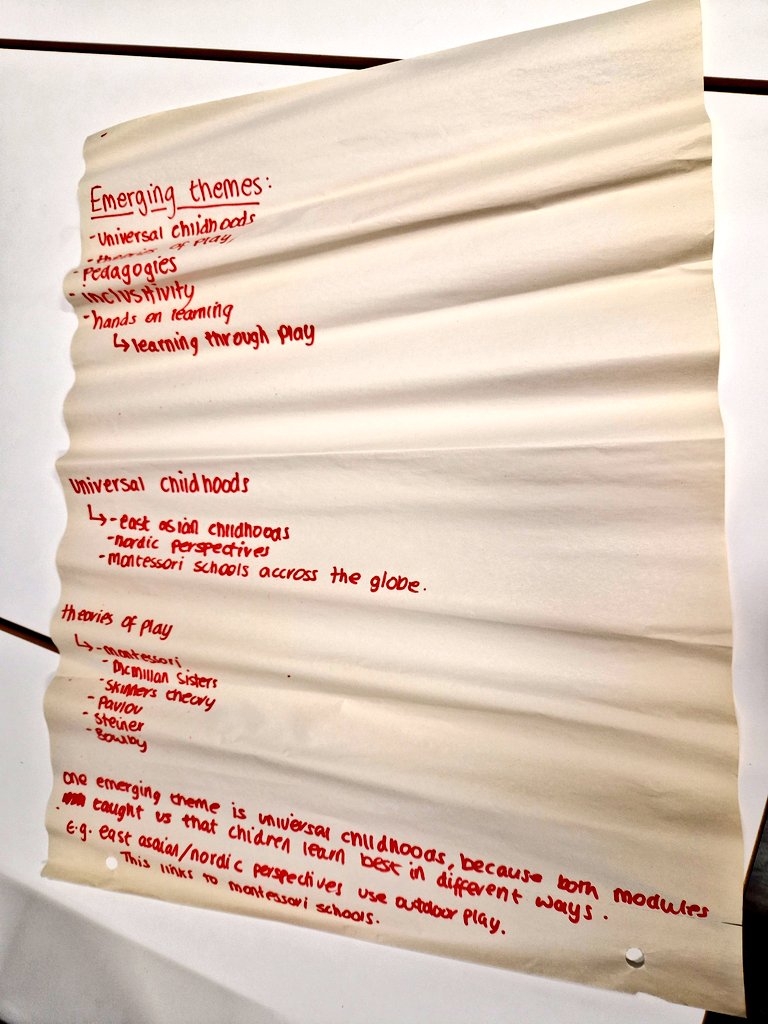 Emerging themes:
- Universal childhoods
- theories of play
- Pedagogies
- inclusitivity
- hands on learning
↳ learning through play
universal childhoods
↳ - east asian childhoods
- nordic perspectives
- montessori schools accross the globe.
theories of play
↳ - montessori
- Mcmillan Sisters
- Skinners theory
- Pavlov
- Steiner
- Bowlby
One emerging theme is universal childhoods, because both modules
taught us that children learn best in different ways.
E.g. east asaian/nordic perspectives use outdoor play.
This links to montessori schools.